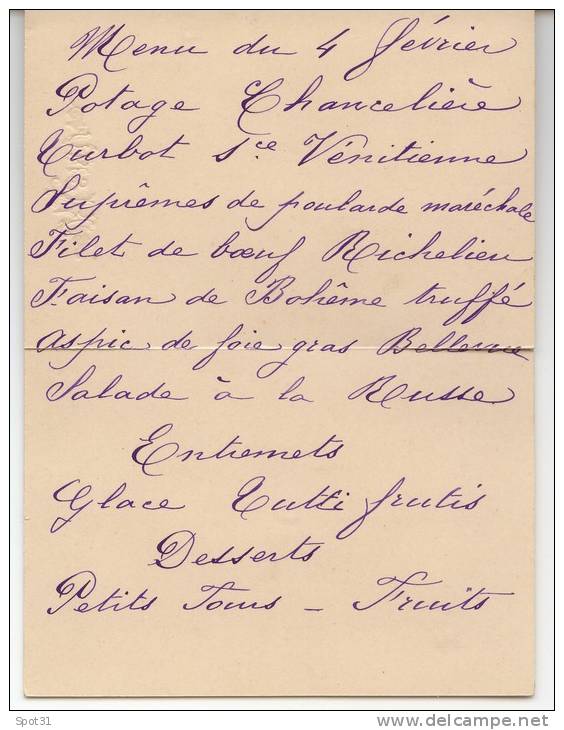 Menu du 4 février
Potage Chancelière
Turbot sce Vénitienne
Suprêmes de poularde maréchale
Filet de bœuf Richelieu
Faisan de Bohême truffé
Aspic de foie gras Bellevue
Salade à la Russe
Entremets
Glace Tutti frutis
Desserts
Petits Fours - Fruits
Spot31
www.delcampe.net